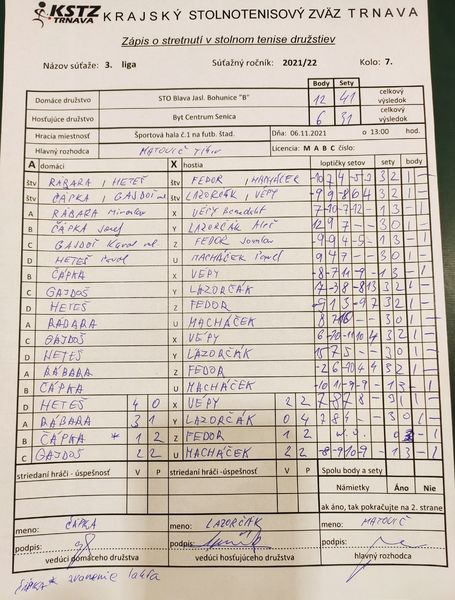 KSTZ TRNAVA KRAJSKÝ STOLNOTENISOVÝ ZVÄZ TRNAVA
Zápis o stretnutí v stolnom tenise družstiev
Názov súťaže: 3. liga Súťažný ročník: 2021/22 Kolo: 7.
Body Sety
Domáce družstvo STO Blava Jasl. Bohunice "B" 12 41 celkový výsledok
Hosťujúce družstvo Byt Centrum Senica 6 31 celkový výsledok
Hracia miestnosť Športová hala č.1 na futb. štad. Dňa: 06.11.2021 o 13:00 hod.
Hlavný rozhodca MATOVIČ Licencia: M A B C číslo:
A domáci X hostia loptičky setov sety body
štv RÁBARA, HETEŠ štv FEDOR, MACHÁČEK 3 2 1 -
štv ČÁPKA, GAJDOŠ ml štv LAZORČÁK, VÉPY -9 9 -8 6 4 3 2 1 -
A RÁBARA Miroslav X VÉPY 7 -10 -7 -12 - 1 3 - 1
B ČÁPKA Jozef Y LAZORČÁK 3 0 1 -
C GAJDOŠ Karol ml Z FEDOR Jaroslav -9 9 4 -5 - 1 3 - 1
D HETEŠ Pavol U MACHÁČEK Pavel 9 4 7 - - 3 0 1 -
B ČÁPKA X VÉPY -8 -7 11 -9 - 1 3 - 1
C GAJDOŠ Y LAZORČÁK 3 2 1 -
D HETEŠ Z FEDOR 3 2 1 -
A RÁBARA U MACHÁČEK 3 0 1 -
C GAJDOŠ X VÉPY 3 2 1 -
D HETEŠ Y LAZORČÁK 15 7 5 - - 3 0 1 -
A RÁBARA Z FEDOR 3 2 1 -
B ČÁPKA U MACHÁČEK -10 11 -9 -9 - 1 3 - 1
D HETEŠ 4 0 X VÉPY 2 2 1 -
A RÁBARA 3 1 Y LAZORČÁK 0 4 7 8 4 - - 3 0 1 -
B ČÁPKA * 1 2 Z FEDOR 1 2 - 1
C GAJDOŠ 2 2 U MACHÁČEK 2 2 -8 -9 10 -9 - 1 3 - 1
striedaní hráči - úspešnosť V P striedaní hráči - úspešnosť V P Spolu body a sety
Námietky Áno Nie
ak áno, tak pokračujte na 2. strane
meno: ČÁPKA meno: LAZORČÁK meno: MATOVIČ
podpis: podpis: podpis:
vedúci domáceho družstva vedúci hosťujúceho družstva hlavný rozhodca
ČÁPKA * zranenie lakťa